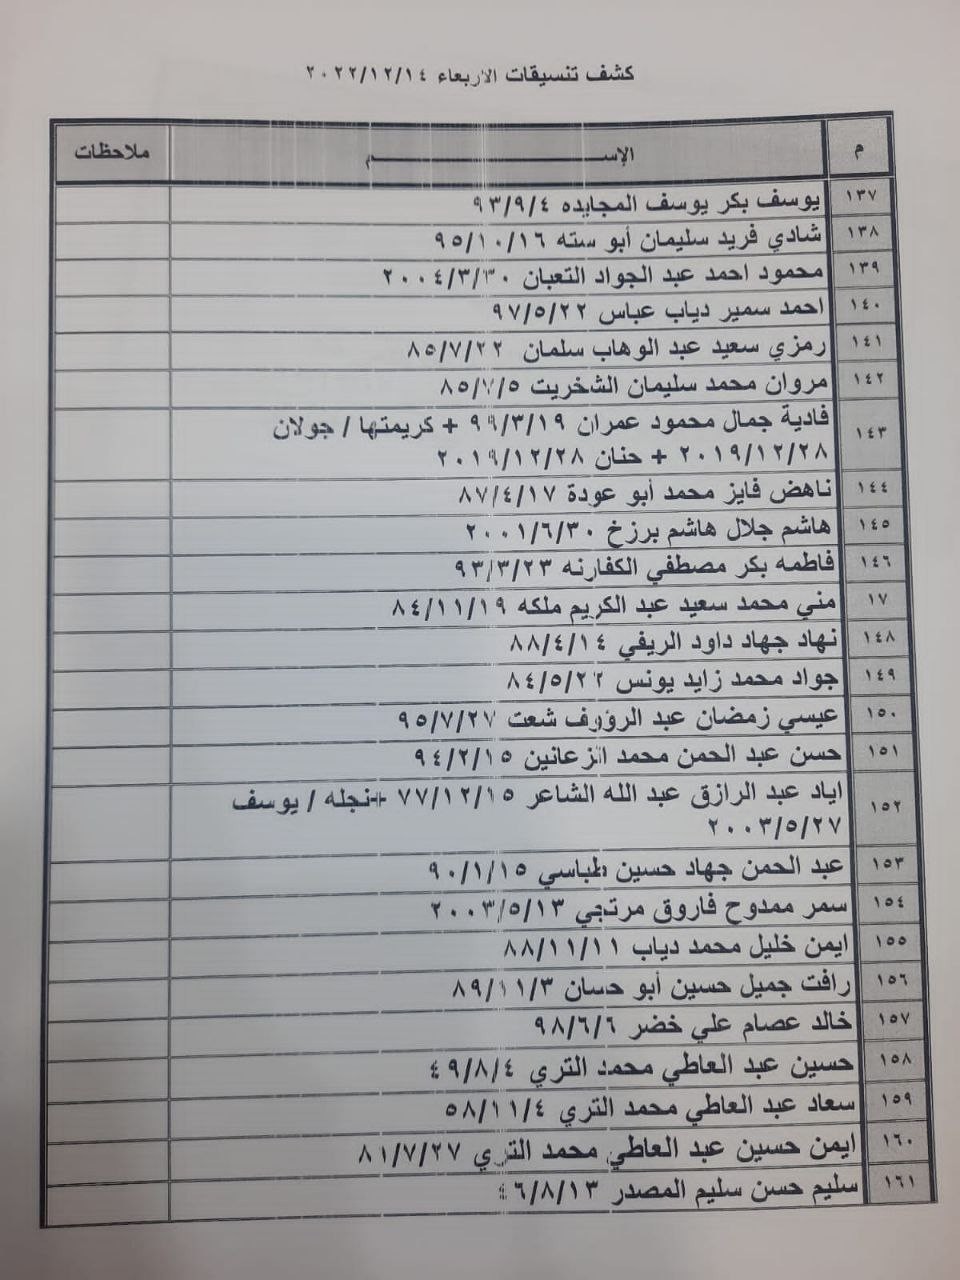 كشف تنسيقات الاربعاء ٢٠٢٢/١٢/١٤
م الإســـــم ملاحظات
١٣٧ يوسف بكر يوسف المجايده ٩٣/٩/٤
١٣٨ شادي فريد سليمان أبو سته ٩٥/١٠/١٦
١٣٩ محمود احمد عبد الجواد التعبان ٢٠٠٤/٣/٣٠
١٤٠ احمد سمير دياب عباس ٩٧/٥/٢٢
١٤١ رمزي سعيد عبد الوهاب سلمان ٨٥/٧/٢٢
١٤٢ مروان محمد سليمان الشخريت ٨٥/٧/٥
١٤٣ فادية جمال محمود عمران ٩٩/٣/١٩ + كريمتها / جولان
٢٠١٩/١٢/٢٨ + حنان ٢٠١٩/١٢/٢٨
١٤٤ ناهض فايز محمد أبو عودة ٨٧/٤/١٧
١٤٥ هاشم جلال هاشم برزخ ٢٠٠١/٦/٣٠
١٤٦ فاطمه بكر مصطفي الكفارنه ٩٣/٣/٢٣
١٧ مني محمد سعيد عبد الكريم ملكه ٨٤/١١/١٩
١٤٨ نهاد جهاد داود الريفي ٨٨/٤/١٤
١٤٩ جواد محمد زايد يونس ٨٤/٥/٢٢
١٥٠ عيسي زمضان عبد الرؤوف شعت ٩٥/٧/٢٧
١٥١ حسن عبد الحمن محمد الزعانين ٩٤/٢/١٥
١٥٢ اياد عبد الرازق عبد الله الشاعر ٧٧/١٢/١٥ +نجله / يوسف
٢٠٠٣/٥/٢٧
١٥٣ عبد الحمن جهاد حسين طباسي ٩٠/١/١٥
١٥٤ سمر ممدوح فاروق مرتجي ٢٠٠٣/٥/١٣
١٥٥ ايمن خليل محمد دياب ٨٨/١١/١١
١٥٦ رافت جميل حسين أبو حسان ٨٩/١١/٣
١٥٧ خالد عصام علي خضر ٩٨/٦/٦
١٥٨ حسين عبد العاطي محمد التري ٤٩/٨/٤
١٥٩ سعاد عبد العاطي محمد التري ٥٨/١١/٤
١٦٠ ايمن حسين عبد العاطي محمد التري ٨١/٧/٢٧
١٦١ سليم حسن سليم المصدر ٤٦/٨/١٣